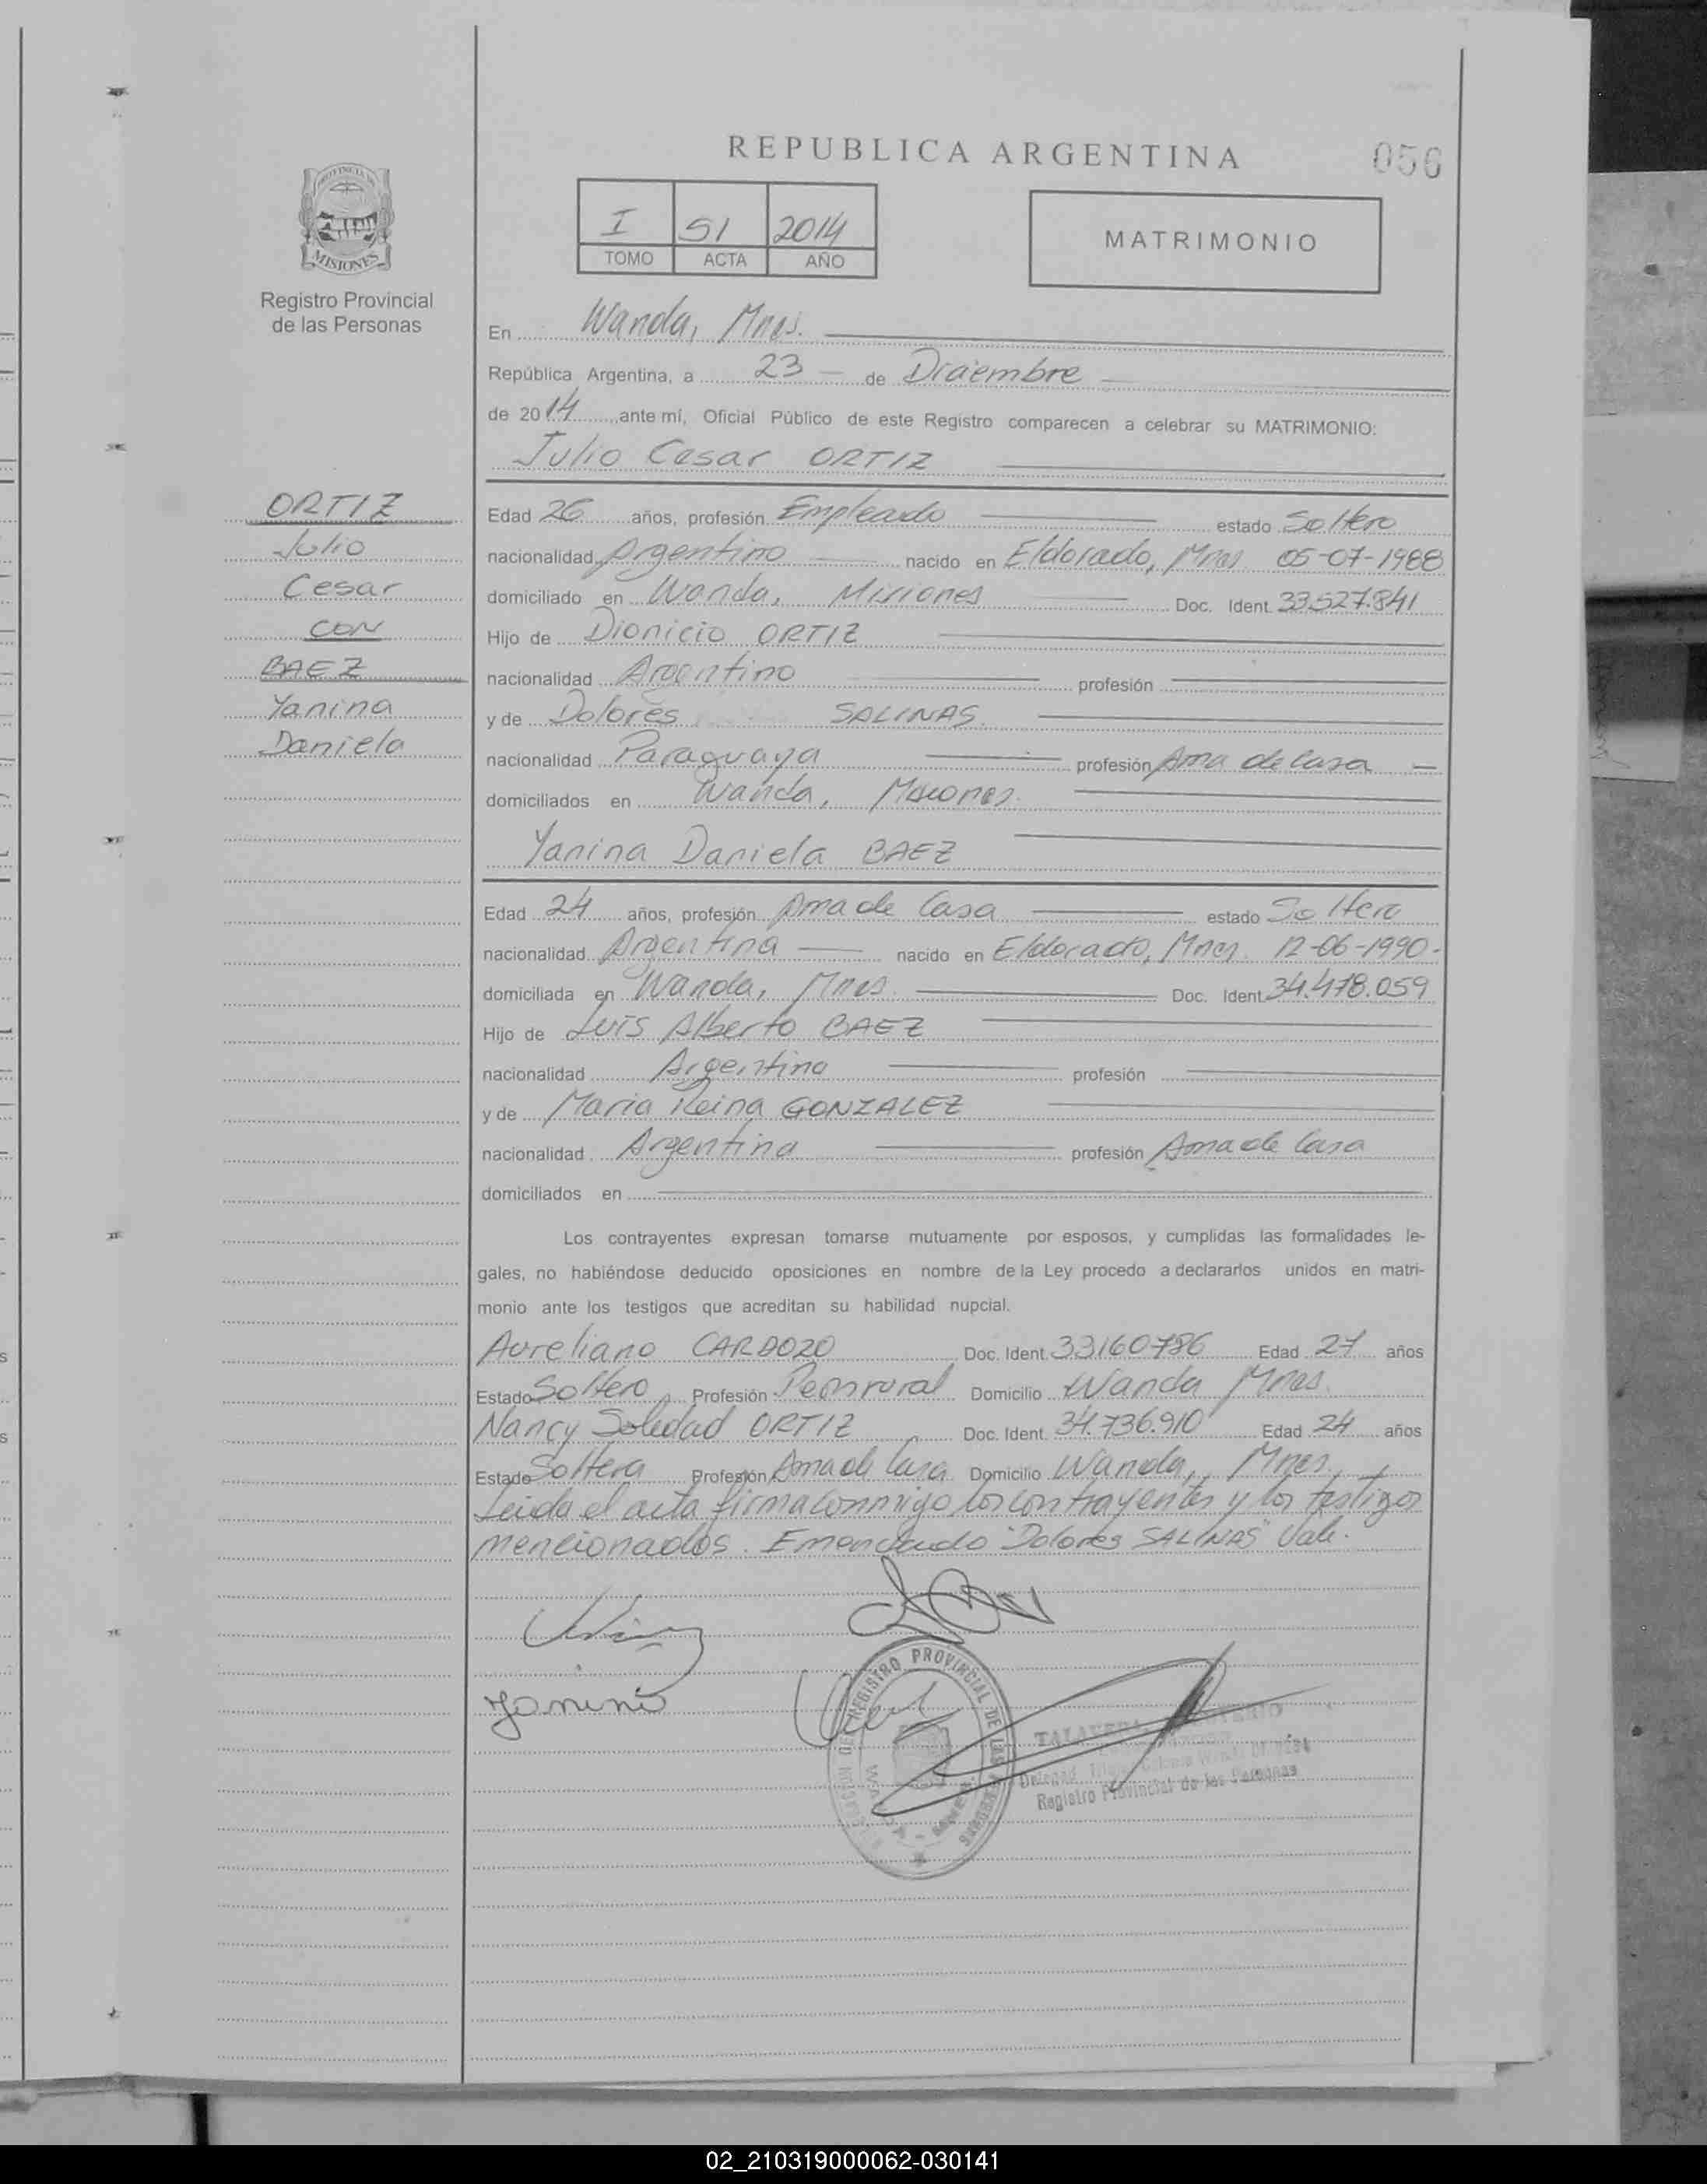 REPUBLICA ARGENTINA
056
PROVINCIA DE
MISIONES
Registro Provincial
de las Personas
I 51 2014
TOMO ACTA AÑO
MATRIMONIO
En Wanda, Mnes.
República Argentina, a 23 de Diciembre
de 2014, ante mí, Oficial Público de este Registro comparecen a celebrar su MATRIMONIO:
Julio Cesar ORTIZ
ORTIZ
Julio
Cesar
CON
BAEZ
Yanina
Daniela
Edad 26 años, profesión Empleado estado Soltero
nacionalidad Argentino nacido en Eldorado, Mnes 05-07-1988
domiciliado en Wanda, Misiones Doc. Ident. 33.527.841
Hijo de Dionicio ORTIZ
nacionalidad Argentino profesión
y de Dolores SALINAS
nacionalidad Paraguaya profesión Ama de Casa
domiciliados en Wanda, Misiones.
Yanina Daniela BAEZ
Edad 24 años, profesión Ama de Casa estado Soltera
nacionalidad Argentina nacido en Eldorado, Mnes. 12-06-1990.
domiciliada en Wanda, Mnes. Doc. Ident. 34.478.059
Hijo de Luis Alberto BAEZ
nacionalidad Argentino profesión
y de Maria Reina GONZALEZ
nacionalidad Argentina profesión Ama de Casa
domiciliados en
Los contrayentes expresan tomarse mutuamente por esposos, y cumplidas las formalidades le-
gales, no habiéndose deducido oposiciones en nombre de la Ley procedo a declararlos unidos en matri-
monio ante los testigos que acreditan su habilidad nupcial.
Aureliano CARDOZO Doc. Ident. 33160786 Edad 27 años
Estado Soltero Profesión Peon rural Domicilio Wanda Mnes.
Nancy Soledad ORTIZ Doc. Ident. 34.736.910 Edad 24 años
Estado Soltera Profesión Ama de Casa Domicilio Wanda, Mnes.
Leida el acta firma conmigo los contrayentes y los testigos
mencionados. Emendado "Dolores SALINAS" Vale.
Yanina
REGISTRO PROVINCIAL DE LAS PERSONAS
TALAVERA
Registro Provincial de las Personas
02_210319000062-030141